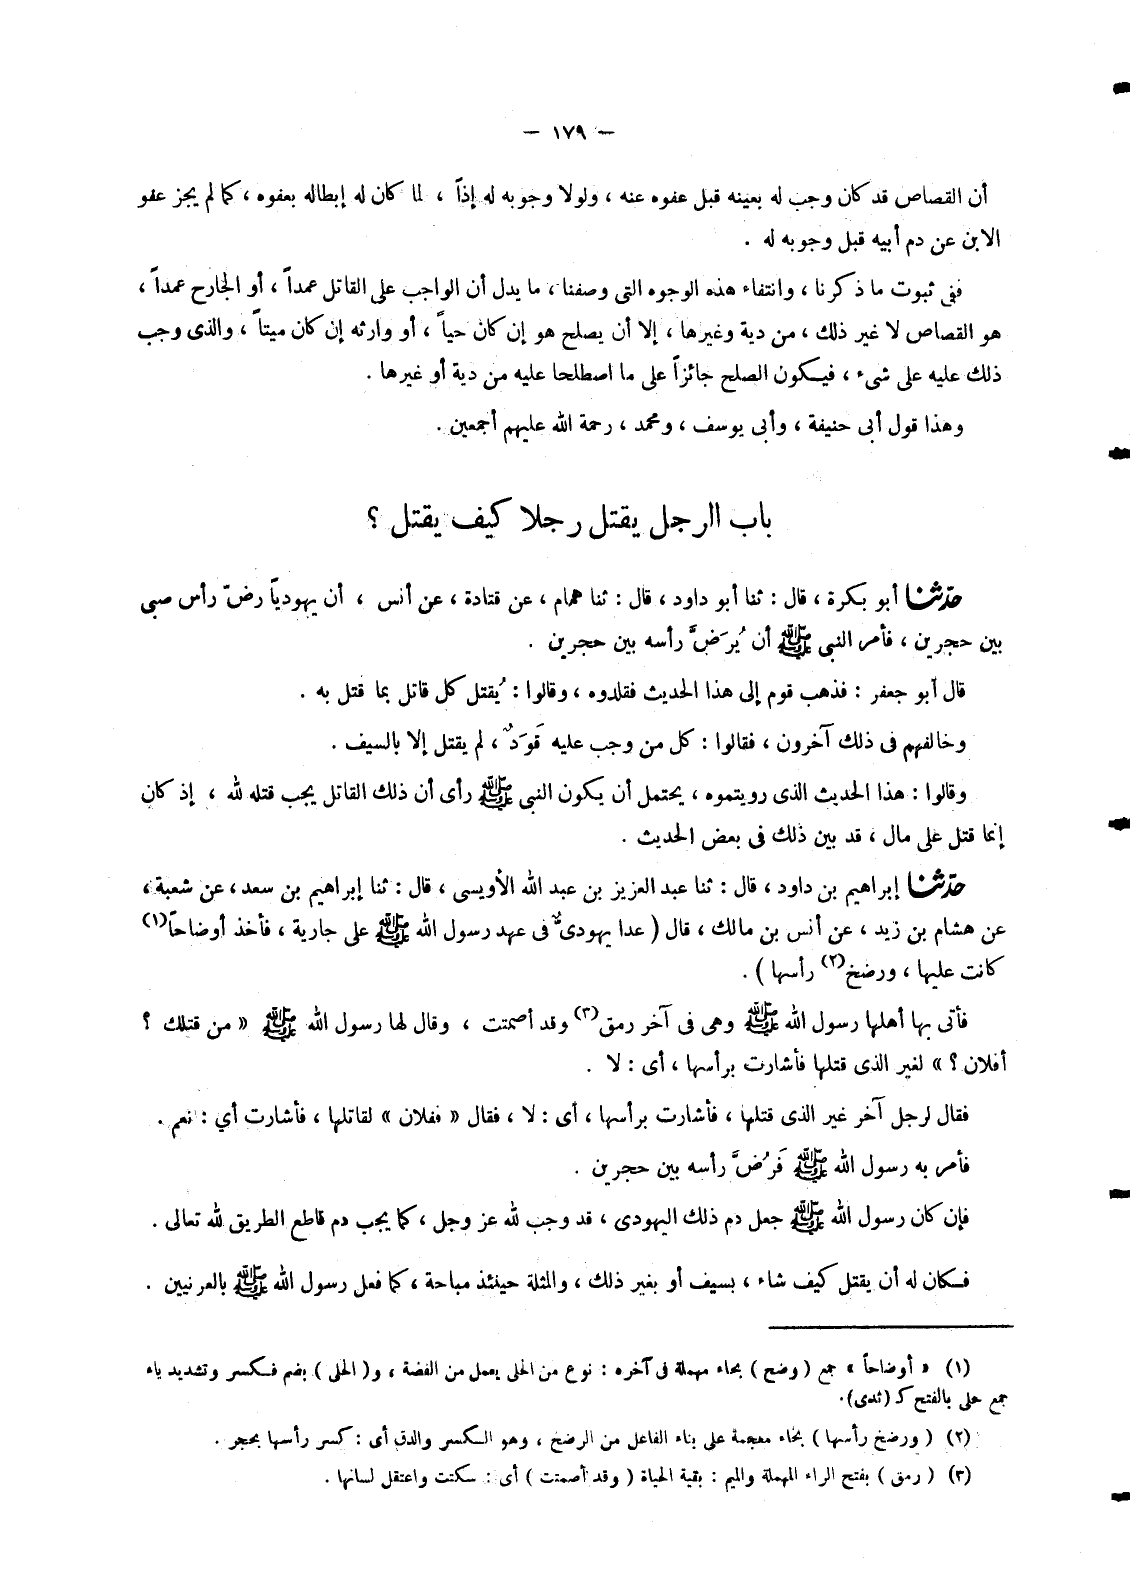 — ١٧٩ —
أن القصاص قد كان وجب له بعينه قبل عفوه عنه ، ولولا وجوبه له إذاً ، لما كان له إبطاله بعفوه ، كما لم يجز عفو
الابن عن دم أبيه قبل وجوبه له .
ففى ثبوت ما ذكرنا ، وانتفاء هذه الوجوه التى وصفنا ، ما يدل أن الواجب على القاتل عمداً ، أو الجارح عمداً ،
هو القصاص لا غير ذلك ، من دية وغيرها ، إلا أن يصلح هو إن كان حياً ، أو وارثه إن كان ميتاً ، والذى وجب
ذلك عليه على شىء ، فيكون الصلح جائزاً على ما اصطلحا عليه من دية أو غيرها .
وهذا قول أبى حنيفة ، وأبى يوسف ، ومحمد ، رحمة الله عليهم أجمعين .
باب الرجل يقتل رجلا كيف يقتل ؟
حدّثنا أبو بكرة ، قال : ثنا أبو داود ، قال : ثنا همام ، عن قتادة ، عن أنس ، أن يهودياً رضّ رأس صبى
بين حجرين ، فأمر النبى ﷺ أن يُرَضَّ رأسه بين حجرين .
قال أبو جعفر : فذهب قوم إلى هذا الحديث فقلدوه ، وقالوا : يُقتل كل قاتل بما قتل به .
وخالفهم فى ذلك آخرون ، فقالوا : كل من وجب عليه قَوَدٌ ، لم يقتل إلا بالسيف .
وقالوا : هذا الحديث الذى رويتموه ، يحتمل أن يكون النبى ﷺ رأى أن ذلك القاتل يجب قتله لله ، إذ كان
إنما قتل على مال ، قد بين ذلك فى بعض الحديث .
حدّثنا إبراهيم بن داود ، قال : ثنا عبد العزيز بن عبد الله الأويسى ، قال : ثنا إبراهيم بن سعد ، عن شعبة ،
عن هشام بن زيد ، عن أنس بن مالك ، قال ( عدا يهودىٌّ فى عهد رسول الله ﷺ على جارية ، فأخذ أوضاحاً(١)
كانت عليها ، ورضخ(٢) رأسها ) .
فأتى بها أهلها رسول الله ﷺ وهى فى آخر رمق(٣) وقد أصمتت ، وقال لها رسول الله ﷺ « من قتلك ؟
أفلان ؟ » لغير الذى قتلها فأشارت برأسها ، أى : لا .
فقال لرجل آخر غير الذى قتلها ، فأشارت برأسها ، أى : لا ، فقال « ففلان » لقاتلها ، فأشارت أي : نعم .
فأمر به رسول الله ﷺ فَرُضَّ رأسه بين حجرين .
فإن كان رسول الله ﷺ جعل دم ذلك اليهودى ، قد وجب لله عز وجل ، كما يجب دم قاطع الطريق لله تعالى .
فكان له أن يقتل كيف شاء ، بسيف أو بغير ذلك ، والمثلة حينئذ مباحة ، كما فعل رسول الله ﷺ بالعرنيين .
(١) « أوضاحاً » جمع ( وضح ) بحاء مهملة فى آخره : نوع من الحلى يعمل من الفضة ، و( الحلى ) بضم فكسر وتشديد ياء
جمع حلى بالفتح كـ (ثدى).
(٢) ( ورضخ رأسها ) بخاء معجمة على بناء الفاعل من الرضخ ، وهو الكسر والدق أى : كسر رأسها بحجر .
(٣) ( رمق ) بفتح الراء المهملة والميم : بقية الحياة ( وقد أصمتت ) أى : سكتت واعتقل لسانها .